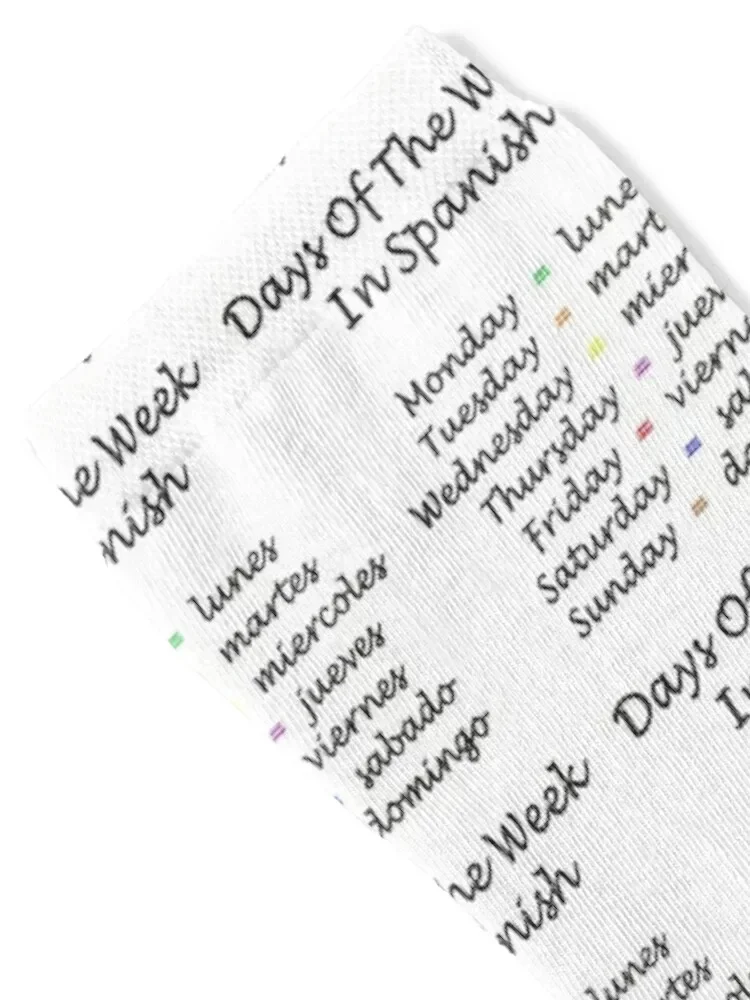 Days Of The W
In Spanish
Monday = lune
Tuesday = mart
Wednesday = mier
Thursday = juev
Friday = vierne
Saturday = sa
Sunday = do
he Week
nish
= lunes
martes
miercoles
= jueves
viernes
sabado
domingo
Days Of
In
he Week
nish
lunes
tes